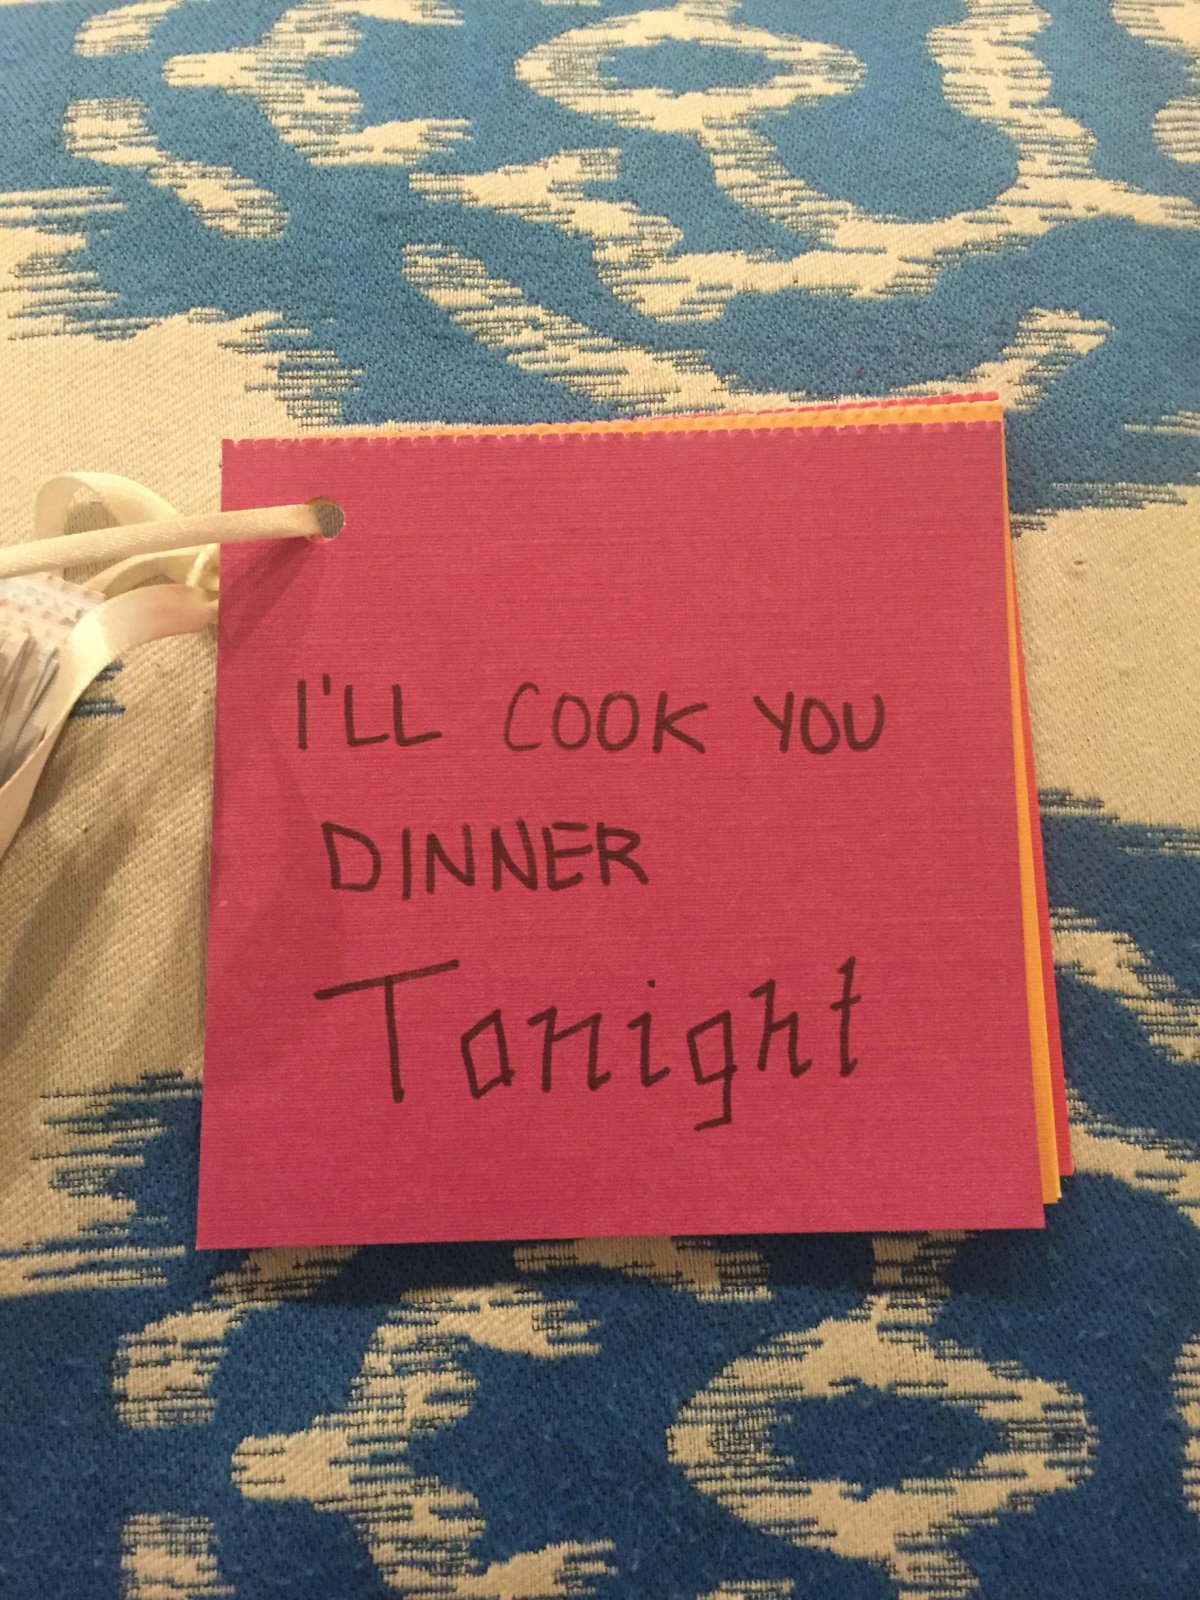 I'LL COOK YOU
DINNER
Tonight